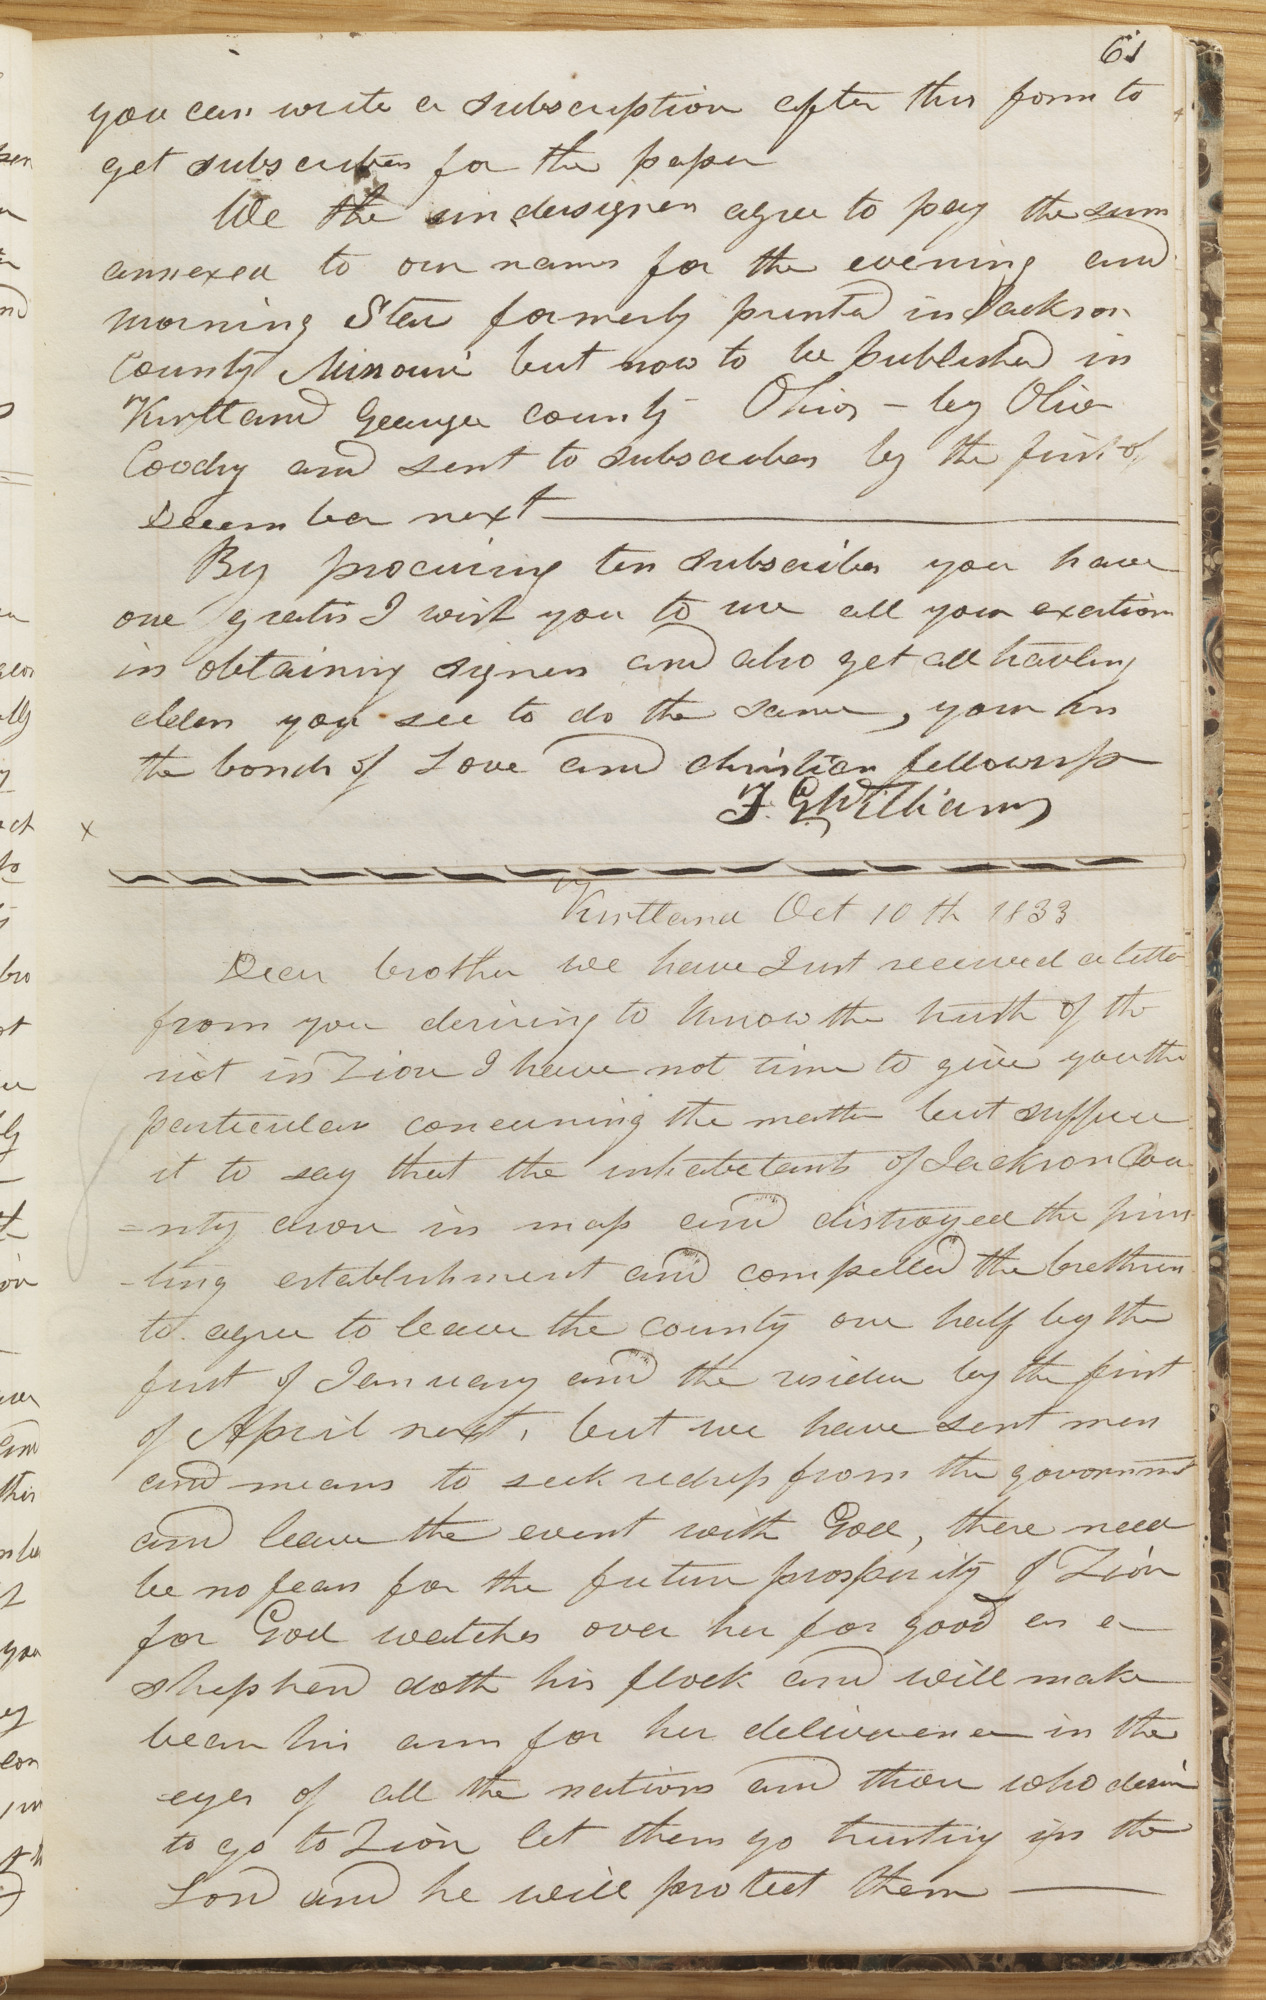 61
you can write a subscription after this form to
get subscribers for the paper
We the undersigners agree to pay the sum
annexed to our names for the evening and
morning Star formerly printed in Jackson
County Missouri but now to be published in
Kirtland Geauga county Ohio – by Oliver
Cowdry and sent to subscribers by the first of
December next
By procuring ten subscribers you have
one gratis I wish you to use all your exertions
in obtaining signers and also get all travling
elders you see to do the same, yours in
the bonds of Love and christian fellowship
F. G. Williams
x
Kirtland Oct 10th 1833
Dear brother we have Just received a letter
from you desiring to know the truth of the
riot in Zion I have not time to give you the
particulars concerning the matter but suffice
it to say that the inhabetants of Jackson Cou
=nty arose in mop and distroyed the prin
-ting establishment and compelled the brethren
to agree to leave the county one half by the
first of January and the residue by the first
of April next, but we have sent men
and means to seek redress from the government
and leave the event with God, there need
be no fears for the future prosperity of Zion
for God watches over her for good as a
shephend doth his flock and will make
bear his arm for her deliverence in the
eyes of all the nations and those who desire
to go to Zion let them go trusting in the
Lord and he will protect them